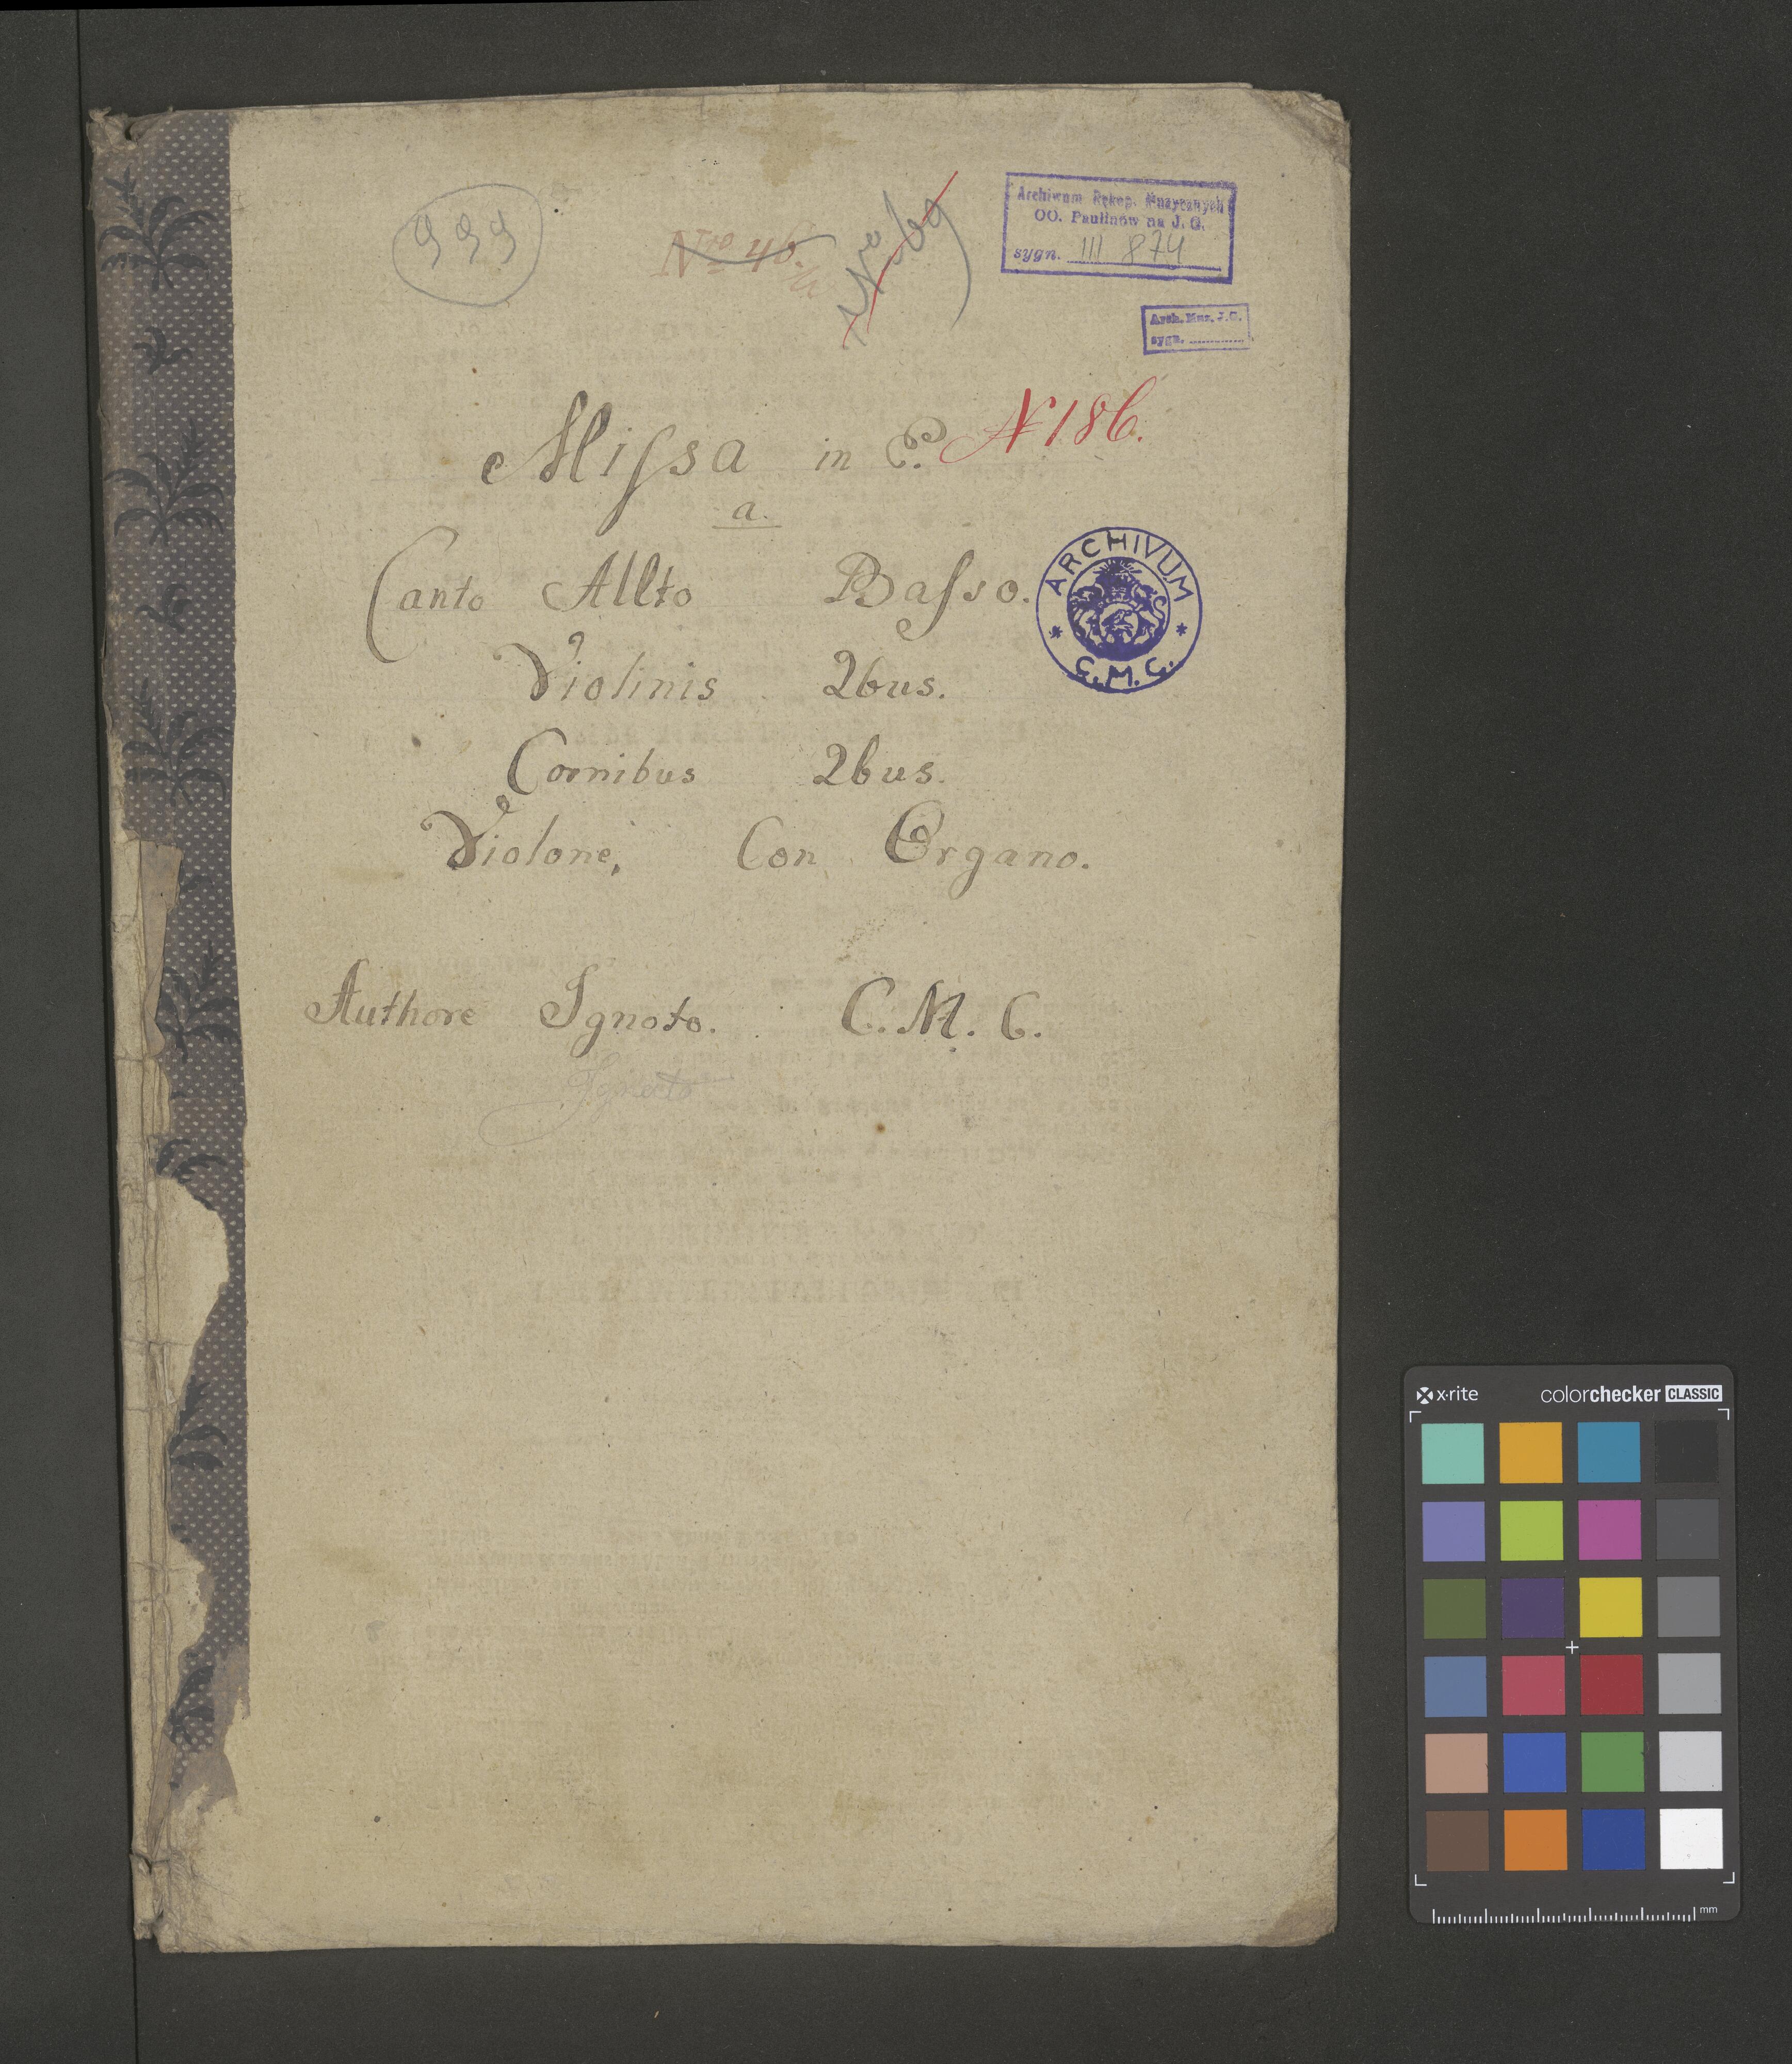 999
Nro 46.
Nro 69
Archiwum Rękop. Muzycznych
OO. Paulinów na J. G.
sygn. III 874
Arch. Muz. J.G.
sygn. ..............
Miſsa in E. N 186.
a.
Canto Allto Baſso.
ARCHIVUM
C.M.C.
Violinis 2bus.
Cornibus 2bus.
Violone, Con Organo.
Authore Ignoto. C. M. C.
x·rite colorchecker CLASSIC
mm